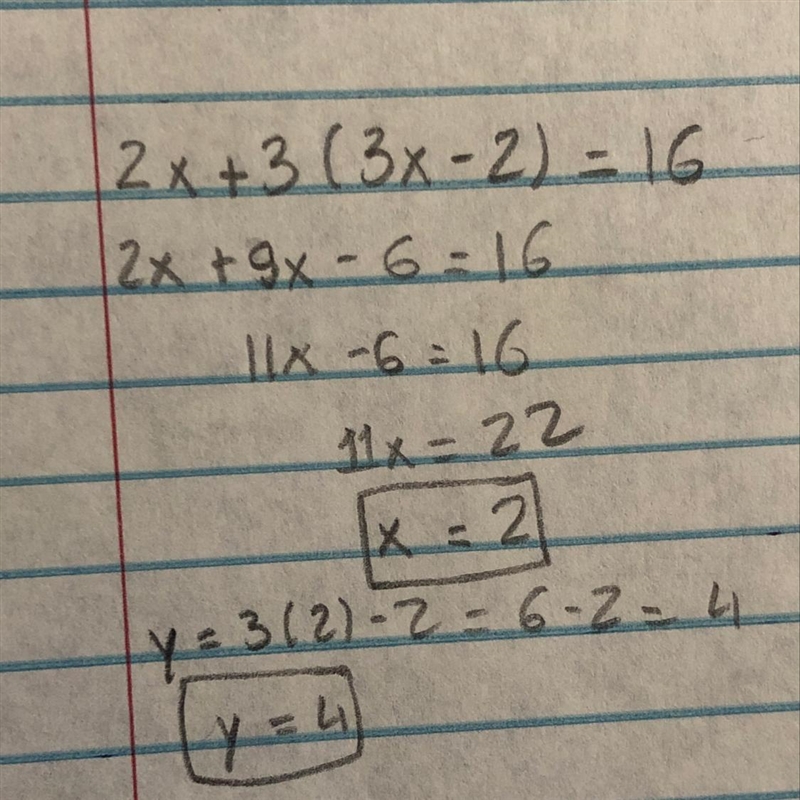 2x + 3(3x - 2) = 16
2x + 9x - 6 = 16
11x - 6 = 16
11x = 22
x = 2
y = 3(2) - 2 = 6 - 2 = 4
y = 4